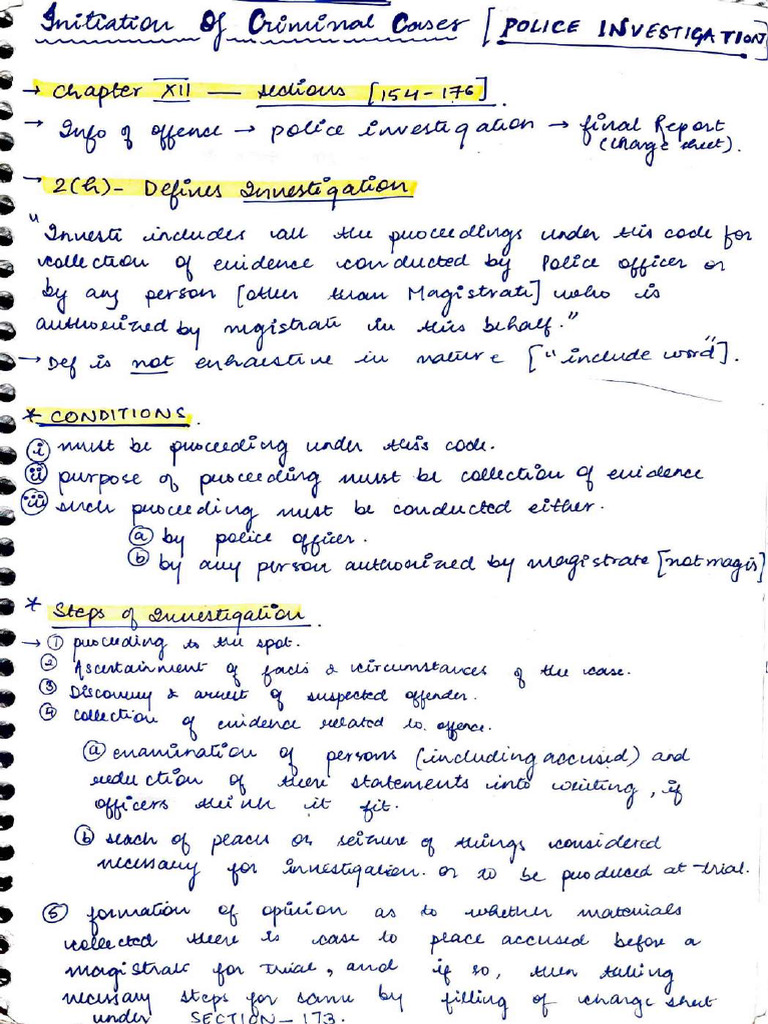 Initiation Of Criminal Cases [POLICE INVESTIGATION]
→ Chapter XII — sections [154-176]
→ Info of offence → police investigation → final Report
(charge sheet).
→ 2(h)- Defines Investigation
"Investi includes all the proceedings under this code for
collection of evidence conducted by Police officer or
by any person [other than Magistrate] who is
authorized by mgistrate in this behalf."
→ Def is not exhaustive in nature ["include word"].
* CONDITIONS.
(i) must be proceeding under this code.
(ii) purpose of proceeding must be collection of evidence
(iii) such proceeding must be conducted either.
(a) by police officer.
(b) by any person authorized by magistrate [not magis]
* Steps of Investigation.
→ (1) proceeding to the spot.
(2) Ascertainment of facts & circumstances of the case.
(3) Discovery & arrest of suspected offender.
(4) collection of evidence related to offence.
(a) examination of persons (including accused) and
reduction of there statements into writing, if
officers think it fit.
(b) seach of places or seizure of things considered
necessary for investigation. or to be produced at trial.
(5) formation of opinion as to whether materials
collected there is case to place accused before a
magistrate for trial, and if so, then taking
necessary steps for same by filling of charge sheet
under SECTION-173.